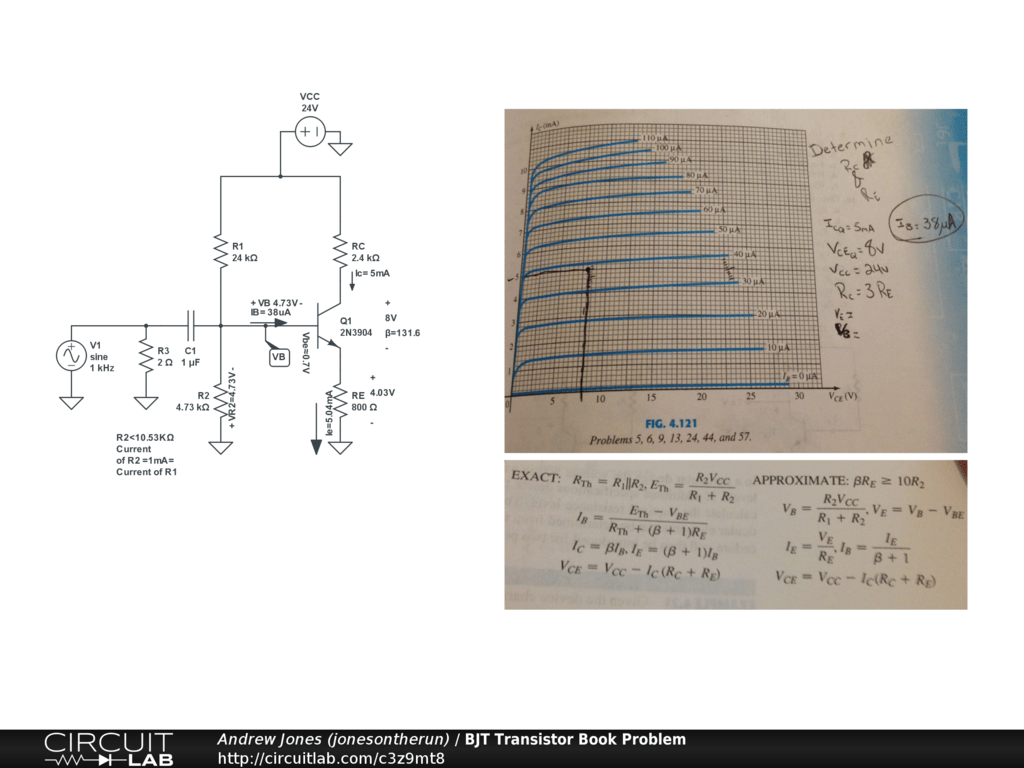 VCC
24V
R1
24 kΩ
RC
2.4 kΩ
Ic= 5mA
+ VB 4.73V -
IB= 38uA
+
8V
β=131.6
-
Q1
2N3904
Vbe=0.7V
VB
V1
sine
1 kHz
R3
2 Ω
C1
1 µF
R2
4.73 kΩ
+ VR2=4.73V -
Ie=5.04mA
+
RE 4.03V
800 Ω
-
R2<10.53KΩ
Current
of R2 =1mA=
Current of R1
IC (mA)
110 µA
100 µA
90 µA
80 µA
70 µA
60 µA
50 µA
40 µA
30 µA
20 µA
10 µA
IB = 0 µA
10
9
8
7
6
5
4
3
2
1
0
5
10
15
20
25
30
VCE (V)
FIG. 4.121
Problems 5, 6, 9, 13, 24, 44, and 57.
Determine
&
RE
ICQ = 5mA
IB = 38µA
VCEQ = 8V
VCC = 24V
RC = 3 RE
VB =
EXACT: RTh = R1||R2, ETh = R2VCC / R1 + R2
IB = ETh − VBE / RTh + (β + 1)RE
IC = βIB, IE = (β + 1)IB
VCE = VCC − IC(RC + RE)
APPROXIMATE: βRE ≥ 10R2
VB = R2VCC / R1 + R2, VE = VB − VBE
IE = VE / RE, IB = IE / β + 1
VCE = VCC − IC(RC + RE)
CIRCUIT
LAB
Andrew Jones (jonesontherun) / BJT Transistor Book Problem
http://circuitlab.com/c3z9mt8